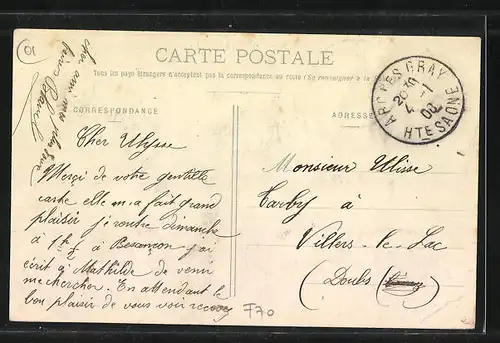 01
CARTE POSTALE
Tous les pays étrangers n'acceptent pas la correspondance au recto (Se renseigner à la
CORRESPONDANCE
ADRESSE
ARC LES GRAY
HTE SAONE
Cher Ulysse
Merçi de votre gentille
carte elle m'a fait grand
plaisir je rentre dimanche
à à Besançon j'ai
écrit à Mathilde de venir
me chercher. En attendant le
bon plaisir de vous voir
Monsieur Ulisse
Tarby à
Villers-le-Lac
(Doubs)
F70